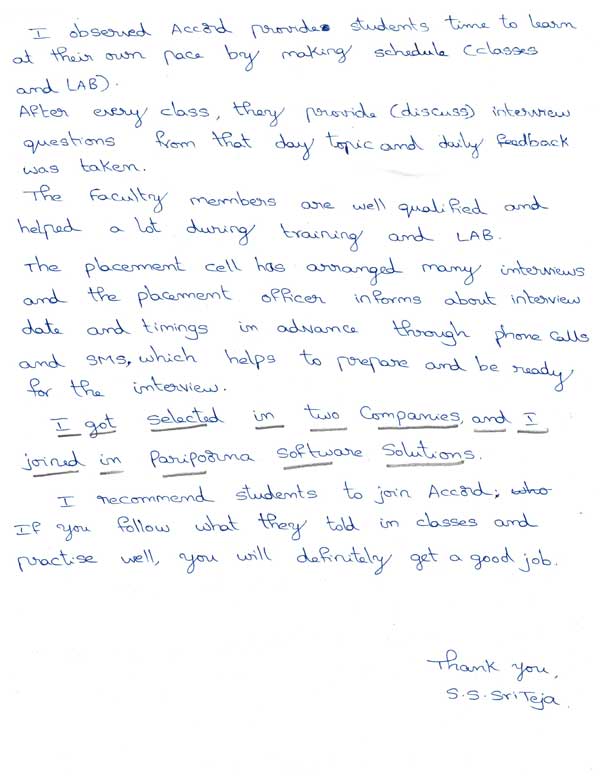 I observed Accord provides students time to learn
at their own pace by making schedule (classes
and LAB).
After every class, they provide (discuss) interview
questions from that day topic and daily feedback
was taken.
The Faculty members are well qualified and
helped a lot during training and LAB.
The placement cell has arranged many interviews
and the placement officer informs about interview
date and timings in advance through phone calls
and SMS, which helps to prepare and be ready
for the interview.
I got selected in two Companies, and I
joined in Paripoorna Software Solutions.
I recommend students to join Accord; who
If you follow what they told in classes and
practise well, you will definitely get a good job.
Thank you,
S.S.SriTeja.